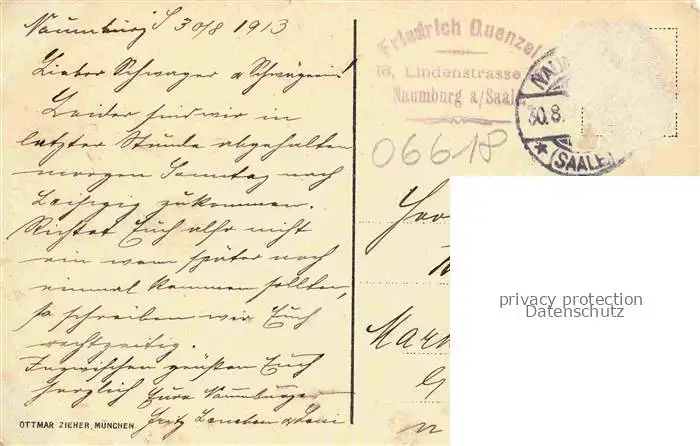 Naumburg S 30/8 1913
Lieber Schwager u Schwägerin!
Leider sind wir in
letzter Stunde abgehalten
morgen Sonntag nach
Leipzig zu kommen.
Richtet Euch also nicht
ein wenn später noch
einmal kommen sollten,
so schreiben wir Euch
rechtzeitig.
Inzwischen grüßen Euch
herzlich Eure Naumburger
Fritz
OTTMAR ZIEHER, MÜNCHEN.
Friedrich Quenzel
Lindenstrasse
Naumburg a/Saale
NAUM
30.8.
* (SAALE)
06618
privacy protection
Datenschutz